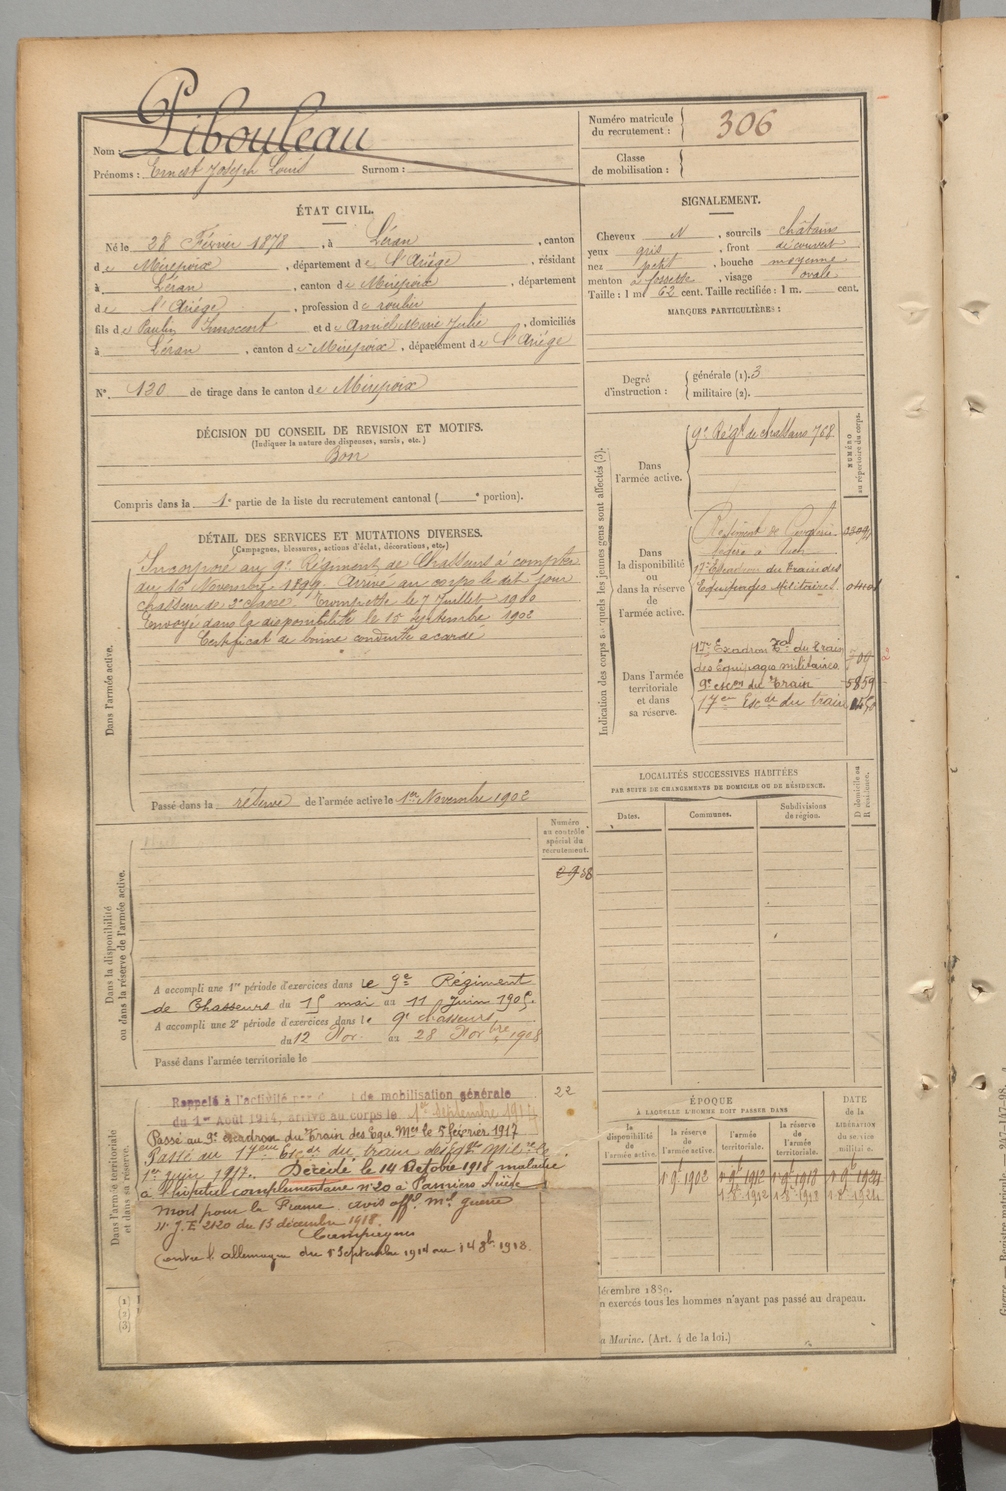 Nom : Pibouleau
Prénoms : Ernest Joseph Louis Surnom :
Numéro matricule du recrutement : 306
Classe de mobilisation :
ÉTAT CIVIL.
Né le 28 Février 1878, à Léran, canton
de Mirepoix, département de l'Ariège, résidant
à Léran, canton de Mirepoix, département
de l'Ariège, profession de roulier
fils de Paulin Innocent et de Amiel Marie Julie, domiciliés
à Léran, canton de Mirepoix, département de l'Ariège
N° 130 de tirage dans le canton de Mirepoix
SIGNALEMENT.
Cheveux N, sourcils châtains
yeux gris, front découvert
nez petit, bouche moyenne
menton à fossette, visage ovale.
Taille : 1 m 62 cent. Taille rectifiée : 1 m. cent.
MARQUES PARTICULIÈRES :
Degré d'instruction : générale (1). 3
militaire (2).
DÉCISION DU CONSEIL DE REVISION ET MOTIFS.
(Indiquer la nature des dispenses, sursis, etc.)
Bon
Compris dans la 1e partie de la liste du recrutement cantonal ( e portion).
DÉTAIL DES SERVICES ET MUTATIONS DIVERSES.
(Campagnes, blessures, actions d'éclat, décorations, etc.)
Dans l'armée active.
Incorporé au 9e Régiment de Chasseurs à compter
du 16 Novembre 1899. Arrivé au corps le dit jour
chasseur de 2e classe. Trompette le 7 Juillet 1900
Envoyé dans la disponibilité le 15 Septembre 1902
Certificat de bonne conduite accordé
Passé dans la réserve de l'armée active le 1er Novembre 1902
Indication des corps auxquels les jeunes gens sont affectés (3).
NUMÉRO au répertoire du corps.
Dans l'armée active.
9e Régt de chasseurs 768
Dans la disponibilité ou dans la réserve de l'armée active.
Régiment de
17e Escadron du Train des
Equipages Militaires
Dans l'armée territoriale et dans sa réserve.
17e Escadron Tal du Train
des Equipages militaires
9e escon du Train 5859
17eme Escdr du train
LOCALITÉS SUCCESSIVES HABITÉES
PAR SUITE DE CHANGEMENTS DE DOMICILE OU DE RÉSIDENCE.
Dates. Communes. Subdivisions de région. D domicile ou R résidence.
Numéro au contrôle spécial du recrutement.
Dans la disponibilité ou dans la réserve de l'armée active.
A accompli une 1re période d'exercices dans le 9e Régiment
de Chasseurs du 15 mai au 11 Juin 1905.
A accompli une 2e période d'exercices dans le 9e chasseurs
du 12 Nov. au 28 Novbre 1908
Passé dans l'armée territoriale le
22
Dans l'armée territoriale et dans sa réserve.
Rappelé à l'activité de mobilisation générale
du 1er Août 1914, arrivé au corps le 1er septembre 1914
Passé au 9e Escadron du Train des Equ. Mres le 5 février 1917
Passé au 17eme Escdr du train des Eqges Milres le
1er juin 1917. Décédé le 14 Octobre 1918 maladie
à l'hôpital complémentaire n° 20 à Pamiers Ariège
Mort pour la France avis offl. ml. guerre
n. J.E 2120 du 13 décembre 1918.
Campagnes
Contre l'allemagne du 1 Septembre 1914 au 14 8bre 1918.
ÉPOQUE
À LAQUELLE L'HOMME DOIT PASSER DANS
la disponibilité de l'armée active. la réserve de l'armée active. l'armée territoriale. la réserve de l'armée territoriale.
DATE de la LIBÉRATION du service militaire.
1 9bre 1902 1 9bre 1912 1 9bre 1918 1 9bre 1924
1-8bre-1912 1-8-1918 1-8-1924
décembre 1889.
n exercés tous les hommes n'ayant pas passé au drapeau.
a Marine. (Art. 4 de la loi.)
(1)
(2)
(3)